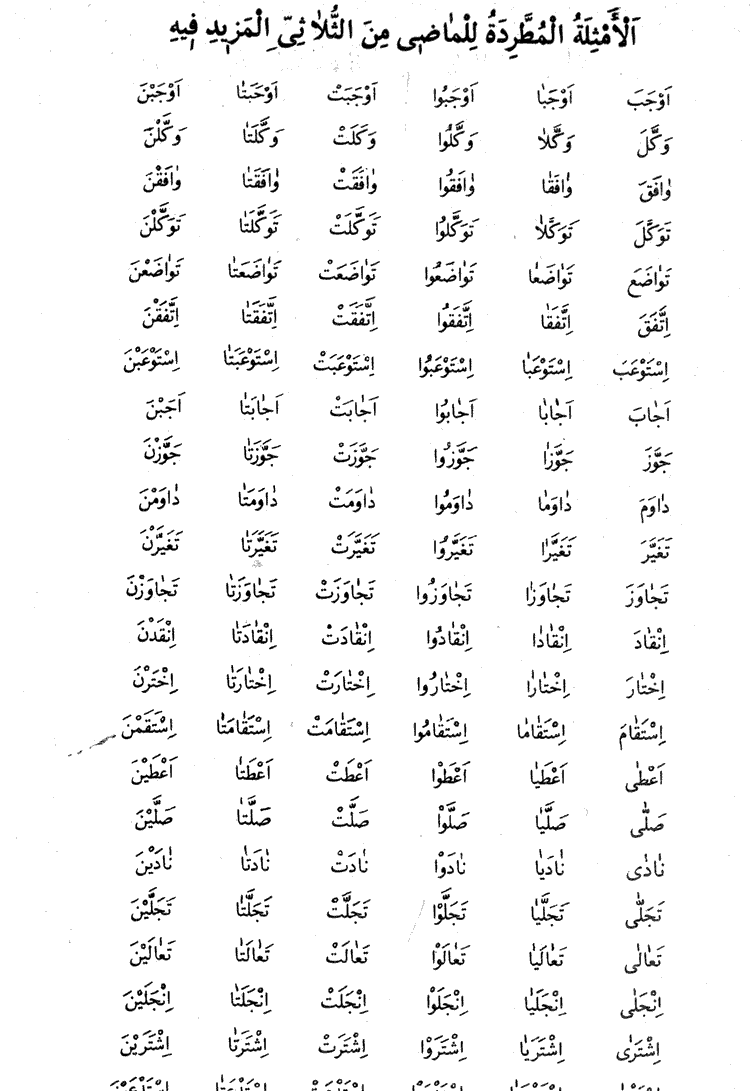 اَلْأَمْثِلَةُ الْمُطَّرِدَةُ لِلْمٰاضٖى مِنَ الثُّلٰاثِىِّ الْمَزٖيدِ فٖيهِ
اَوْجَبَ اَوْجَبٰا اَوْجَبُوا اَوْجَبَتْ اَوْجَبَتٰا اَوْجَبْنَ
وَكَّلَ وَكَّلٰا وَكَّلُوا وَكَّلَتْ وَكَّلَتٰا وَكَّلْنَ
وٰافَقَ وٰافَقٰا وٰافَقُوا وٰافَقَتْ وٰافَقَتٰا وٰافَقْنَ
تَوَكَّلَ تَوَكَّلٰا تَوَكَّلُوا تَوَكَّلَتْ تَوَكَّلَتٰا تَوَكَّلْنَ
تَوٰاضَعَ تَوٰاضَعٰا تَوٰاضَعُوا تَوٰاضَعَتْ تَوٰاضَعَتٰا تَوٰاضَعْنَ
اِتَّفَقَ اِتَّفَقٰا اِتَّفَقُوا اِتَّفَقَتْ اِتَّفَقَتٰا اِتَّفَقْنَ
اِسْتَوْعَبَ اِسْتَوْعَبٰا اِسْتَوْعَبُوا اِسْتَوْعَبَتْ اِسْتَوْعَبَتٰا اِسْتَوْعَبْنَ
اَجٰابَ اَجٰابٰا اَجٰابُوا اَجٰابَتْ اَجٰابَتٰا اَجَبْنَ
جَوَّزَ جَوَّزٰا جَوَّزُوا جَوَّزَتْ جَوَّزَتٰا جَوَّزْنَ
دٰاوَمَ دٰاوَمٰا دٰاوَمُوا دٰاوَمَتْ دٰاوَمَتٰا دٰاوَمْنَ
تَغَيَّرَ تَغَيَّرٰا تَغَيَّرُوا تَغَيَّرَتْ تَغَيَّرَتٰا تَغَيَّرْنَ
تَجٰاوَزَ تَجٰاوَزٰا تَجٰاوَزُوا تَجٰاوَزَتْ تَجٰاوَزَتٰا تَجٰاوَزْنَ
اِنْقٰادَ اِنْقٰادٰا اِنْقٰادُوا اِنْقٰادَتْ اِنْقٰادَتٰا اِنْقَدْنَ
اِخْتٰارَ اِخْتٰارٰا اِخْتٰارُوا اِخْتٰارَتْ اِخْتٰارَتٰا اِخْتَرْنَ
اِسْتَقٰامَ اِسْتَقٰامٰا اِسْتَقٰامُوا اِسْتَقٰامَتْ اِسْتَقٰامَتٰا اِسْتَقَمْنَ
اَعْطٰى اَعْطَيٰا اَعْطَوْا اَعْطَتْ اَعْطَتٰا اَعْطَيْنَ
صَلّٰى صَلَّيٰا صَلَّوْا صَلَّتْ صَلَّتٰا صَلَّيْنَ
نٰادٰى نٰادَيٰا نٰادَوْا نٰادَتْ نٰادَتٰا نٰادَيْنَ
تَجَلّٰى تَجَلَّيٰا تَجَلَّوْا تَجَلَّتْ تَجَلَّتٰا تَجَلَّيْنَ
تَعٰالٰى تَعٰالَيٰا تَعٰالَوْا تَعٰالَتْ تَعٰالَتٰا تَعٰالَيْنَ
اِنْجَلٰى اِنْجَلَيٰا اِنْجَلَوْا اِنْجَلَتْ اِنْجَلَتٰا اِنْجَلَيْنَ
اِشْتَرٰى اِشْتَرَيٰا اِشْتَرَوْا اِشْتَرَتْ اِشْتَرَتٰا اِشْتَرَيْنَ